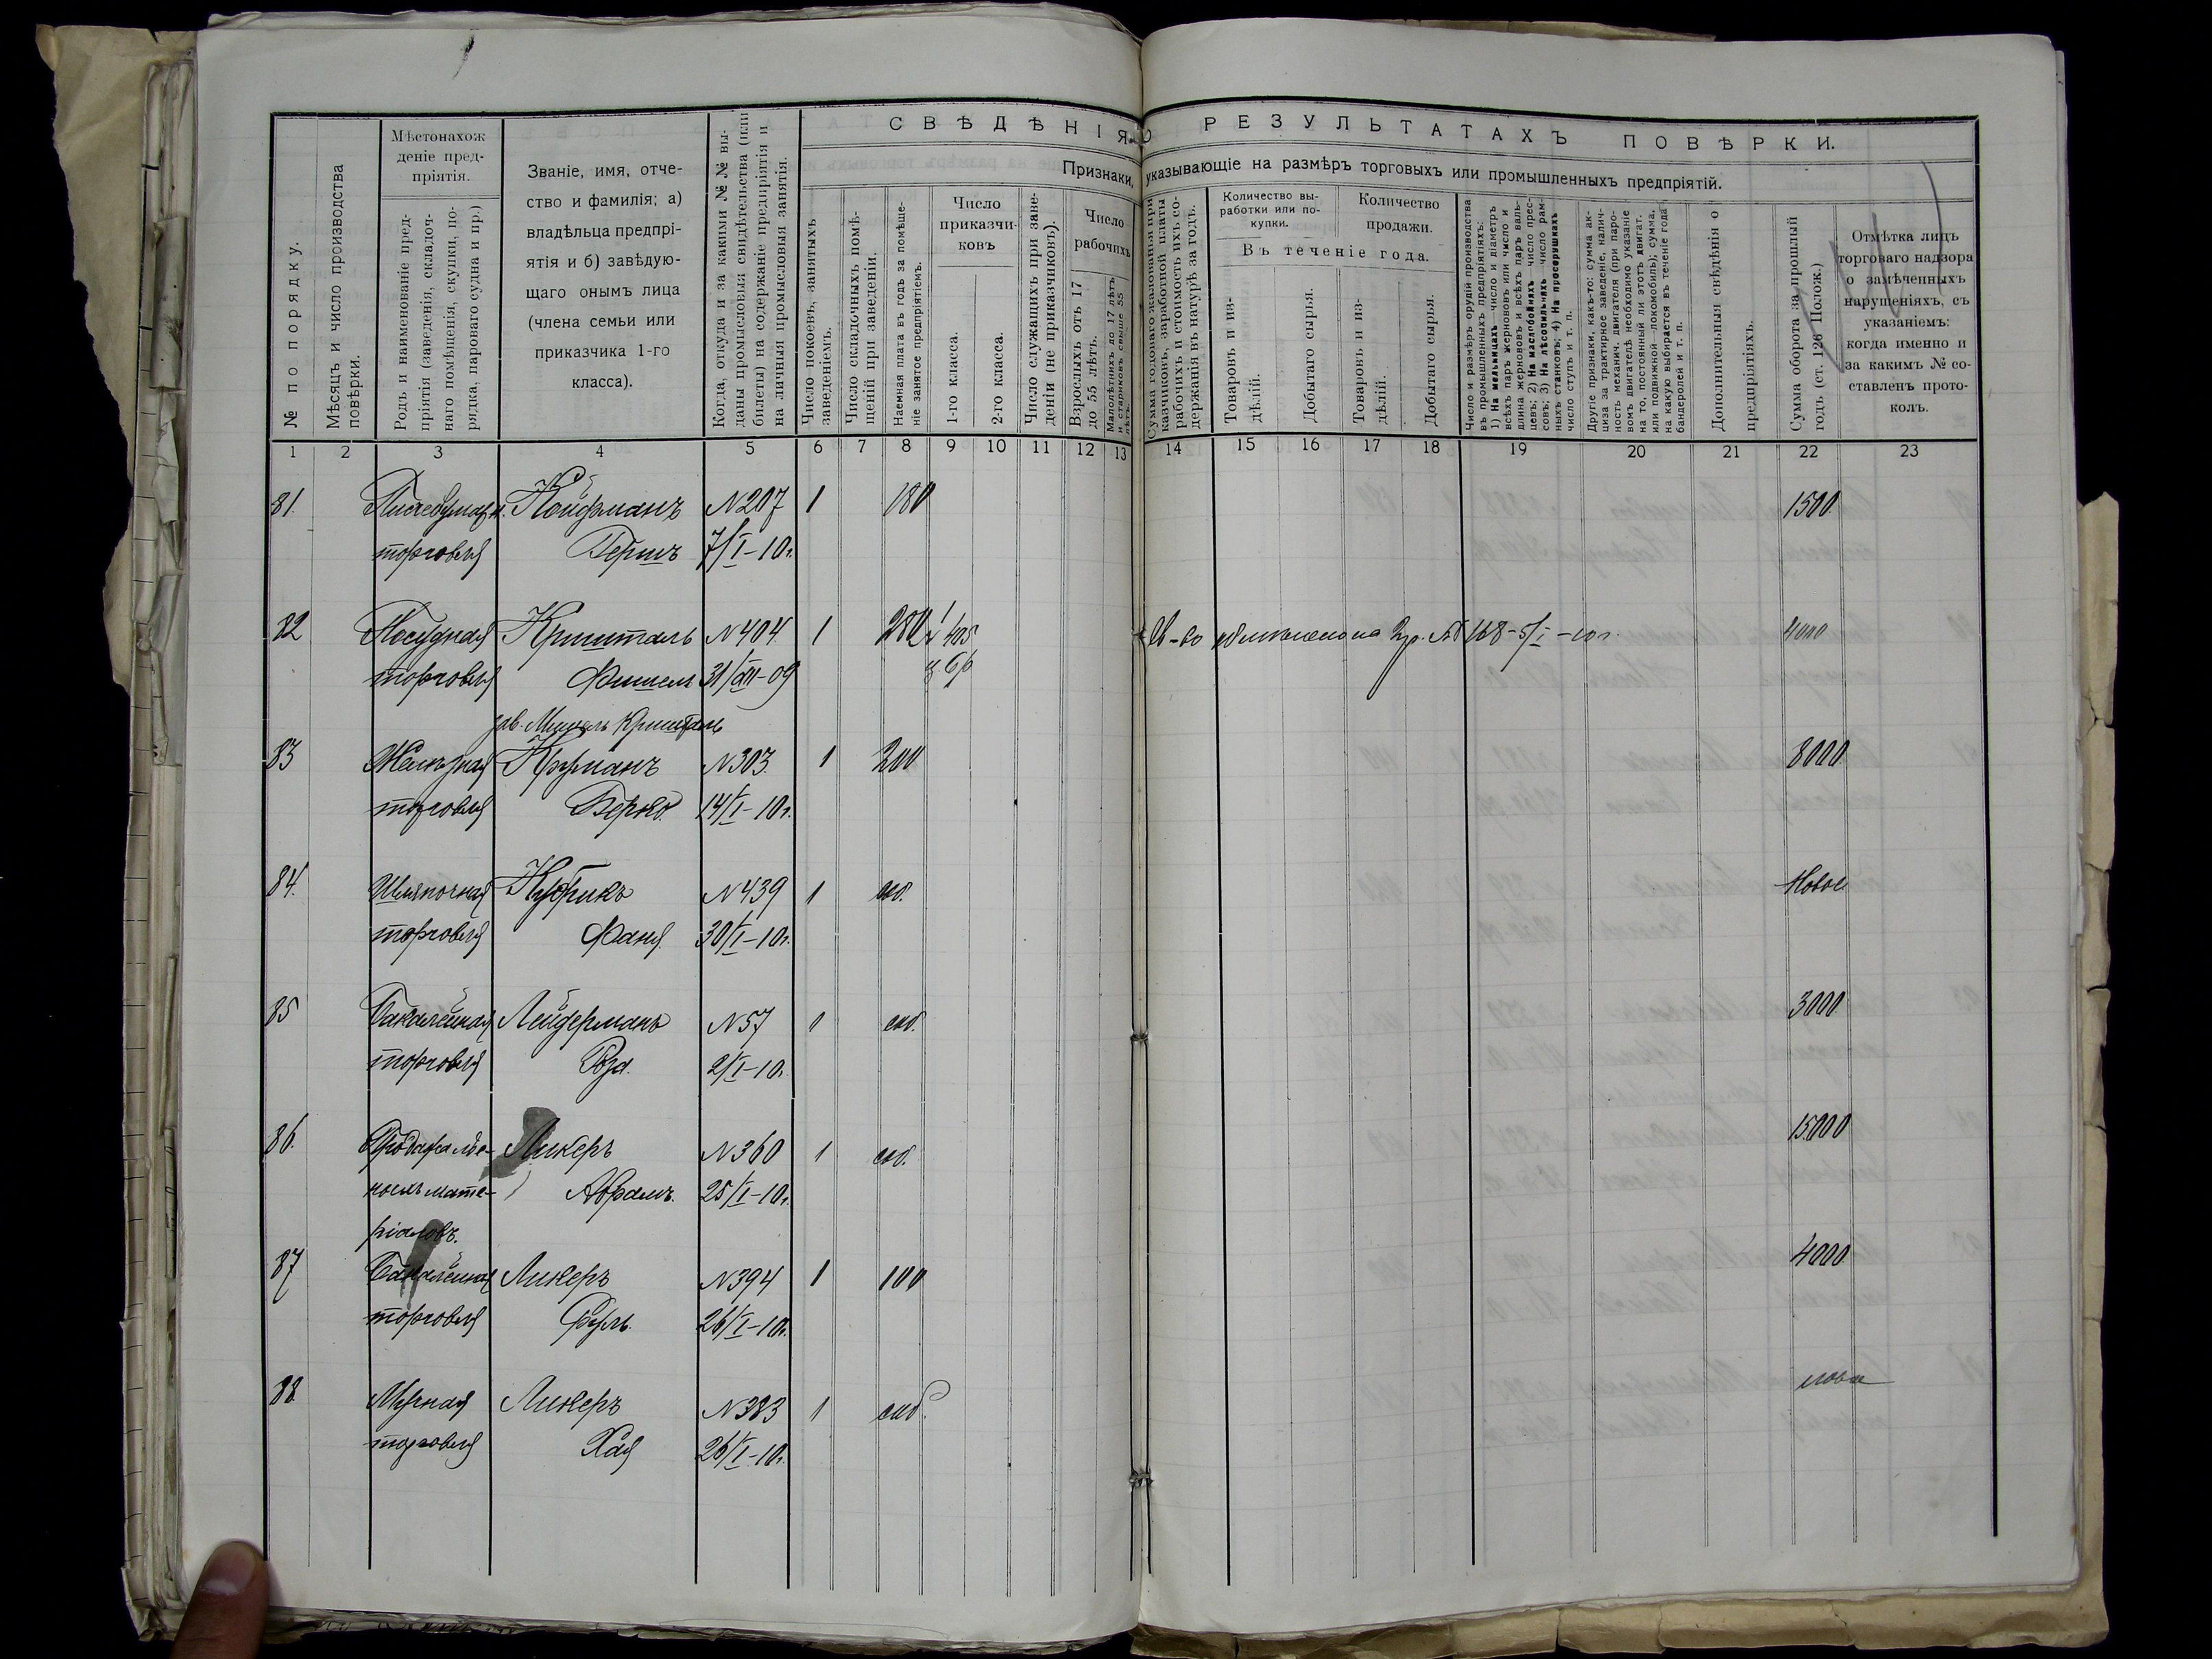 СВѢДѢНІЯ О РЕЗУЛЬТАТАХЪ ПОВѢРКИ.
Признаки, указывающіе на размѣръ торговыхъ или промышленныхъ предпріятій.
№ по порядку.
Мѣсяцъ и число производства повѣрки.
Мѣстонахож
деніе пред-
пріятія.
Родъ и наименованіе пред-
пріятія (заведенія, складоч-
наго помѣщенія, скупки, по-
рядка, пароваго судна и пр.)
Званіе, имя, отче-
ство и фамилія; а)
владѣльца предпрі-
ятія и б) завѣдую-
щаго онымъ лица
(члена семьи или
приказчика 1-го
класса).
Когда, откуда и за какими №№ вы-
даны промысловыя свидѣтельства (или
билеты) на содержаніе предпріятія и
на личныя промысловыя занятія.
Число покоевъ, занятыхъ
заведеніемъ.
Число складочныхъ помѣ-
щеній при заведеніи.
Наемная плата въ годъ за помѣще-
ніе занятое предпріятіемъ.
Число
приказчи-
ковъ
1-го класса.
2-го класса.
Число служащихъ при заве-
деніи (не приказчиковъ).
Число
рабочихъ
Взрослыхъ отъ 17
до 55 лѣтъ.
Малолѣтнихъ до 17 лѣтъ
и стариковъ свыше 55
лѣтъ.
Сумма годоваго жалованья при
казчиковъ, заработной платы
рабочихъ и стоимость ихъ со-
держанія въ натурѣ за годъ.
Количество вы-
работки или по-
купки.
Количество
продажи.
Въ теченіе года.
Товаровъ и из-
дѣлій.
Добытаго сырья.
Товаровъ и из-
дѣлій.
Добытаго сырья.
Число и размѣръ орудій производства
въ промышленныхъ предпріятіяхъ:
1) На мельницахъ—число и діаметръ
всѣхъ паръ жернововъ или число и
длина жернововъ и всѣхъ паръ валь-
цевъ; 2) На маслобойняхъ—число прес-
совъ; 3) На лѣсопильняхъ—число рам-
ныхъ станковъ; 4) На просорушкахъ
число ступъ и т. п.
Другіе признаки, какъ-то: сумма ак-
циза за трактирное заведеніе, налич-
ность механич. двигателя (при паро-
вомъ двигателѣ необходимо указаніе
на то, постоянный ли этотъ двигат.
или подвижной—локомобиль); сумма,
на какую выбирается въ теченіе года
бандеролей и т. п.
Дополнительныя свѣдѣнія о
предпріятіяхъ.
Сумма оборота за прошлый
годъ (ст. 126 Полож.)
Отмѣтка лицъ
торговаго надзора
о замѣченныхъ
нарушеніяхъ, съ
указаніемъ:
когда именно и
за какимъ № со-
ставленъ прото-
колъ.
1 2 3 4 5 6 7 8 9 10 11 12 13 14 15 16 17 18 19 20 21 22 23
81. Писчебумажн. Койфманъ №207 1 180 1500
торговля Гершъ 7/I-10г.
82 Посудная Кришталь №404 1 280 1 №405 4000
торговля Фишель 31/XII-09
зав. Кришталь
83 Желѣзная Круманъ №303. 1 200 8000
торговля Берко. 14/I-10г.
84. Шляпочная Кубрикъ №439 1 соб. Новое
торговля Фаня. 30/I-10г.
85 Бакалейная Лейдерманъ №57 1 соб. 3000
торговля Роза. 2/I-10г.
86. Продажа лѣс- Ликеръ №360 1 соб. 15000
ныхъ мате- Абрамъ. 25/I-10г.
ріаловъ.
87 Бакалейная Ликеръ №394 1 100 4000
торговля 26/I-10г.
88 Мучная Ликеръ №383 1 соб. новое
торговля Хая 26/I-10г.